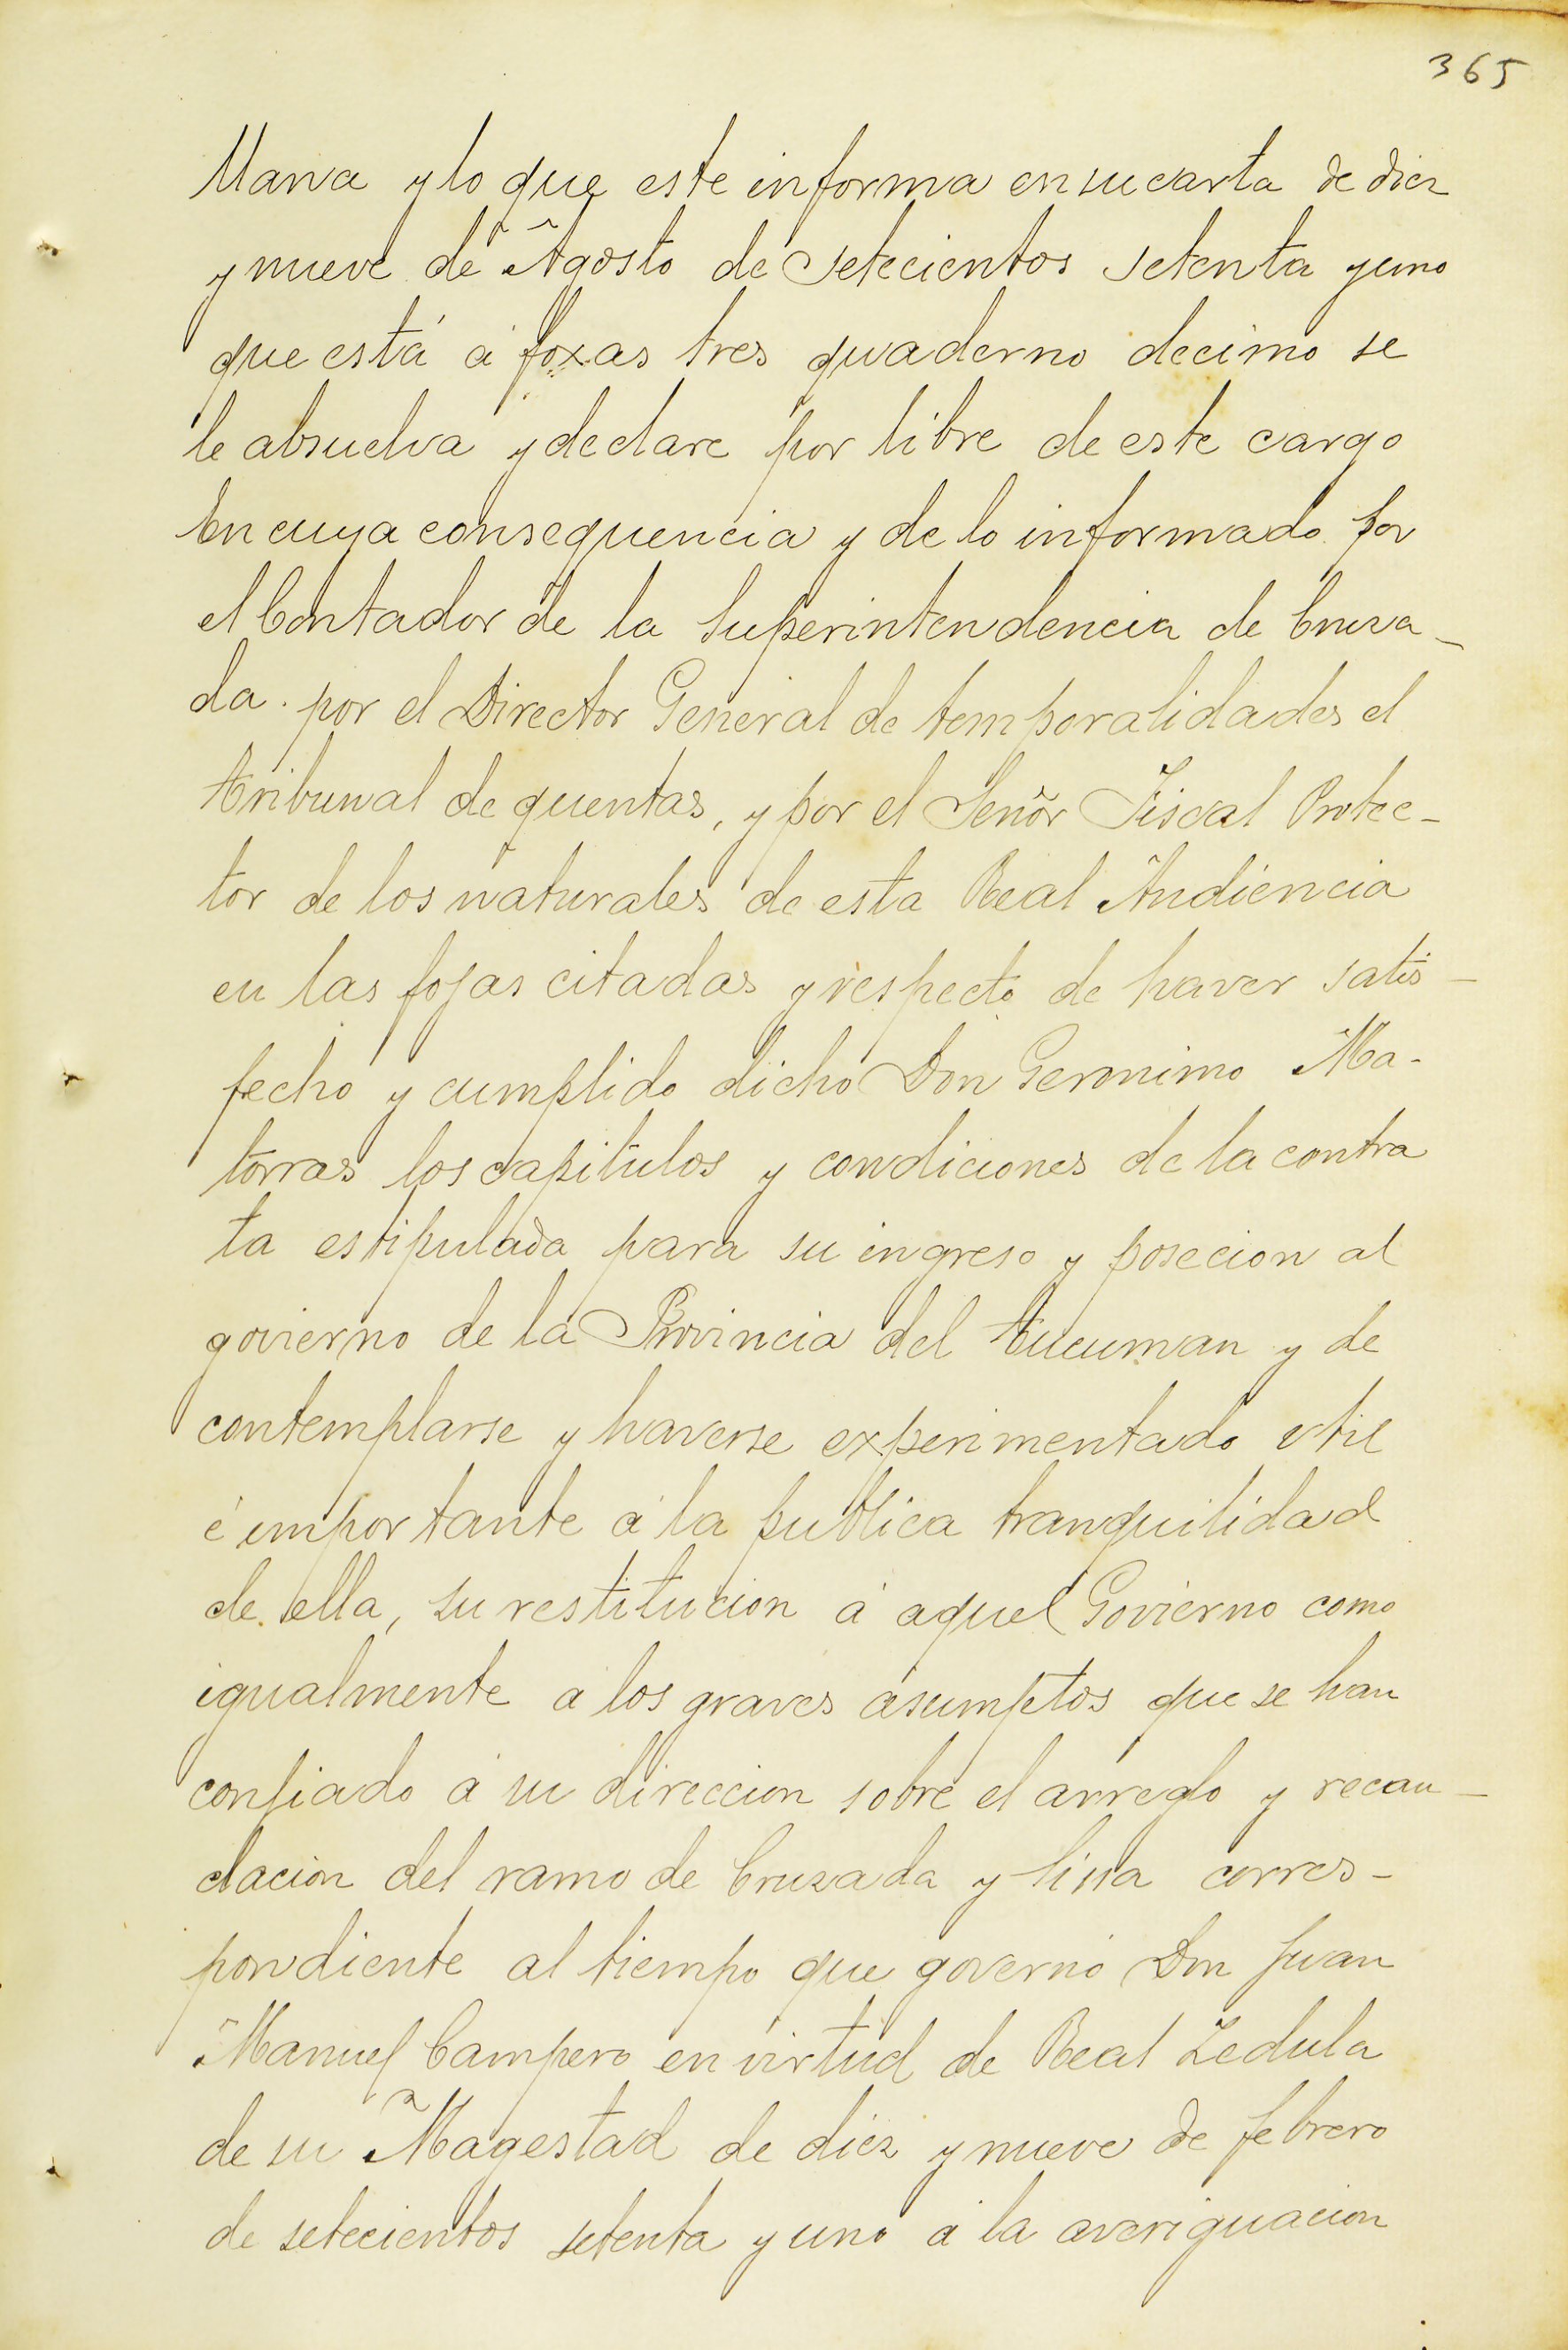 365
Marva y lo que este informa en su carta de diez
y nueve de Agosto de setecientos setenta y uno
que está á foxas tres quaderno decimo se
le absuelva y declare por libre de este cargo
En cuya consequencia y de lo informado por
el Contador de la Superintendencia de Cruza-
da. por el Director General de temporalidades el
tribunal de quentas, y por el Señor Fiscal Protec-
tor de los naturales de esta Real Audiencia
en las fojas citadas y respecto de haver satis-
fecho y cumplido dicho Don Geronimo Ma-
torras los capitulos y condiciones de la contra
ta estipulada para su ingreso y posecion al
govierno de la Provincia del tucuman y de
contemplarse y haverse experimentado vtil
é importante á la publica tranquilidad
de ella, su restitucion á aquel Govierno como
igualmente a los graves asumptos que se han
confiado á su direccion sobre el arreglo y recau-
dacion del ramo de Cruzada y sissa corres-
pondiente al tiempo que governó Don Juan
Manuel Campero en virtud de Real Zedula
de su Magestad de diez y nueve de febrero
de setecientos setenta y uno á la averiguacion